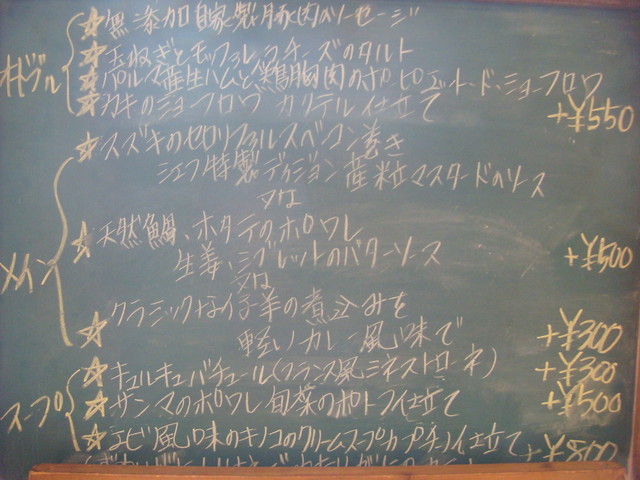 オードブル
☆無添加自家製豚肉のソーセージ
☆玉ねぎとモッツァレラチーズのタルト
☆パルマ産生ハムと鶏胸肉のポピエット・ド・ショーフロワ
☆カキのショーフロワ カクテル仕立て +¥550
メイン
☆スズキのセロリファルス ベーコン巻き
シェフ特製ディジョン産粒マスタードのソース
又は
☆天然鯛、ホタテのポワレ
生姜、シブレットのバターソース +¥500
又は
☆クラシックな仔羊の煮込みを
軽いカレー風味で +¥300
スープ
☆キュルキュバチュール(フランス風ミネストローネ) +¥300
☆サンマのポワレ 旬菜のポトフ仕立て +¥500
☆エビ風味のキノコのクリームスープ カプチーノ仕立て +¥800